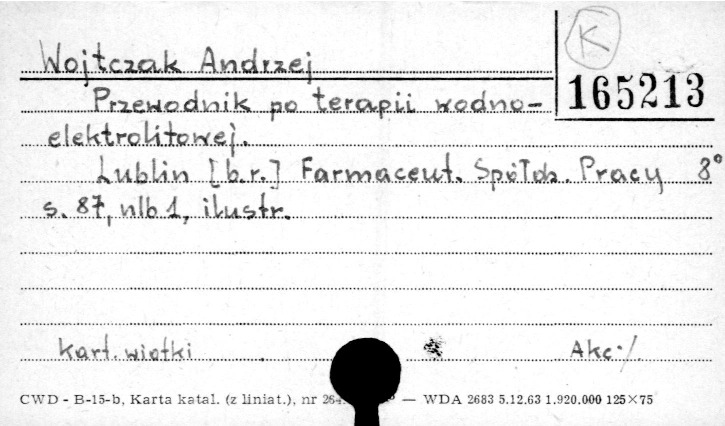 K
Wojtczak Andrzej
165213
Przewodnik po terapii wodno-
elektrolitowej.
Lublin [b.r.] Farmaceut. Spółdz. Pracy 8°
s. 87, nlb 1, ilustr.
kart. wiotki Akc·/
CWD - B-15-b, Karta katal. (z liniat.), nr — WDA 2683 5.12.63 1.920.000 125×75